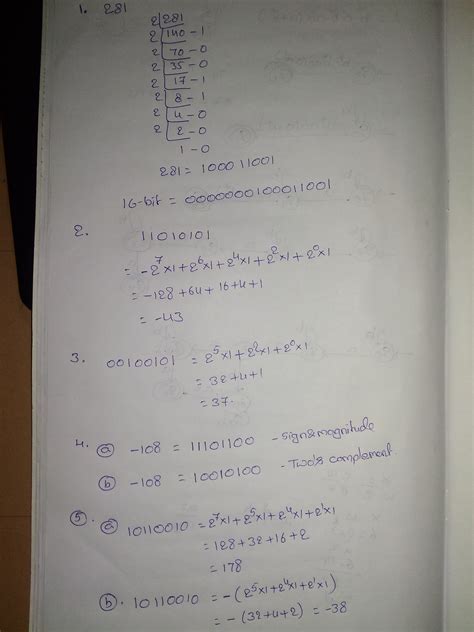 1. 281
2 281
2 140 - 1
2 70 - 0
2 35 - 0
2 17 - 1
2 8 - 1
2 4 - 0
2 2 - 0
1 - 0
281 = 100011001
16-bit = 0000000100011001
2. 11010101
= -2^7×1 + 2^6×1 + 2^4×1 + 2^2×1 + 2^0×1
= -128 + 64 + 16 + 4 + 1
= -43
3. 00100101 = 2^5×1 + 2^2×1 + 2^0×1
= 32 + 4 + 1
= 37
4. (a) -108 = 11101100 - Sign&magnitude
(b) -108 = 10010100 - Two's complement
(5). (a) 10110010 = 2^7×1 + 2^5×1 + 2^4×1 + 2^1×1
= 128 + 32 + 16 + 2
= 178
(b). 10110010 = -(2^5×1 + 2^4×1 + 2^1×1)
= -(32+4+2) = -38